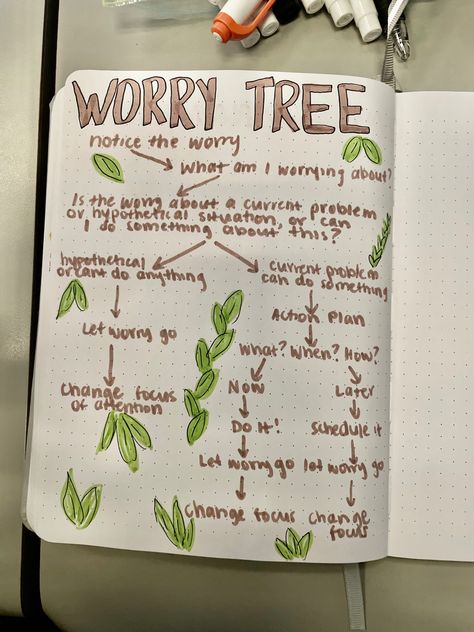 WORRY TREE
notice the worry
What am I worrying about?
Is the worry about a current problem
or hypothetical situation, or can
I do something about this?
hypothetical
or cant do anything
Let worry go
Change focus
of attention
current problem
can do something
Action Plan
What? When? How?
Now
Do It!
Let worry go
Change focus
Later
Schedule it
let worry go
Change
focus